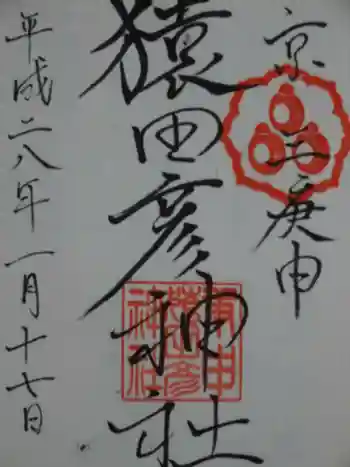 京三庚申
猿田彦神社
平成二八年一月十七日